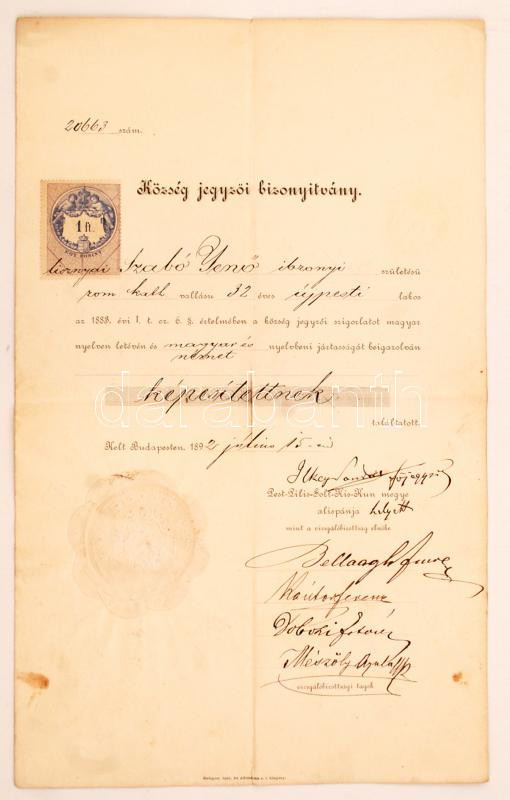 20663 szám.
Község jegyzői bizonyitvány.
1 ft.
EGY FORINT
lisznyai Szabó Jenő ibronyi születésü
rom kath vallásu 32 éves újpesti lakos
az 1883. évi I. t. cz. 6. §. értelmében a község jegyzői szigorlatot magyar
nyelven letévén és magyar és német nyelvbeni jártasságát beigazolván
képesítettnek
találtatott.
Kelt Budapesten, 1892 július 15-én
Ilkey Sándor főjegyző
Pest-Pilis-Solt-Kis-Kun megye
alispánja helyett
mint a vizsgálóbizottság elnöke
Bellaagh Imre
Kántor Ferenc
Mészöly Gyula
vizsgálóbizottsági tagok
darabanth.com